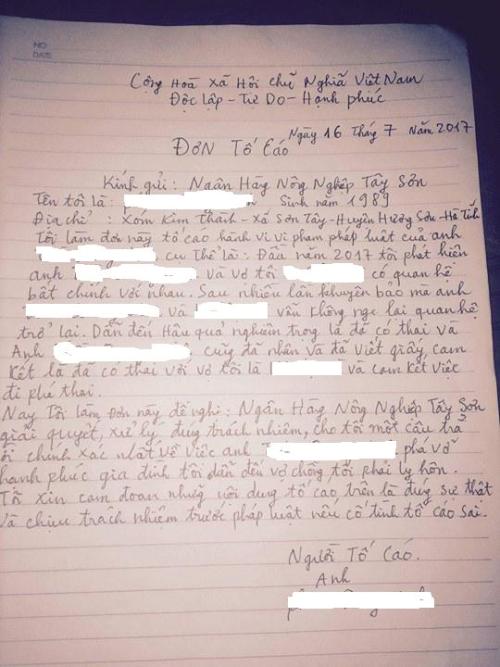 NO
DATE
Cộng Hoà Xã Hội chủ Nghĩa Việt Nam
Độc lập - Tự Do - Hạnh phúc
Ngày 16 Tháng 7 Năm 2017
ĐƠN TỐ CÁO
Kính gửi: Ngân Hàng Nông Nghiệp Tây Sơn
Tên tôi là: Sinh năm 1989
Địa chỉ: Xóm Kim Thành - xã Sơn Tây - Huyện Hương Sơn - Hà Tĩnh
Tôi làm đơn này tố cáo hành vi vi phạm pháp luật của anh
cụ thể là: Đầu năm 2017 tôi phát hiện
anh và vợ tôi có quan hệ
bất chính với nhau. Sau nhiều lần khuyên bảo mà anh
và vẫn không ngc lại quan hệ
trở lại. Dẫn đến Hậu quả nghiêm trọng là đã có thai và
Anh cũng đã nhận và đã viết giấy, cam
kết là đã có thai với vợ tôi là và cam kết việc
đi phá thai.
Nay Tôi làm đơn này đề nghị: Ngân Hàng Nông Nghiệp Tây Sơn
giải quyết, xử lý đúng trách nhiệm, cho tôi một câu trả
lời chính xác nhất về việc anh phá vỡ
hạnh phúc gia đình tôi dẫn đến vợ chồng tôi phải ly hôn.
Tôi xin cam đoan những nội dung tố cáo trên là đúng sự thật
và chịu trách nhiệm trước pháp luật nếu cố tình tố cáo sai.
Người Tố Cáo.
Anh